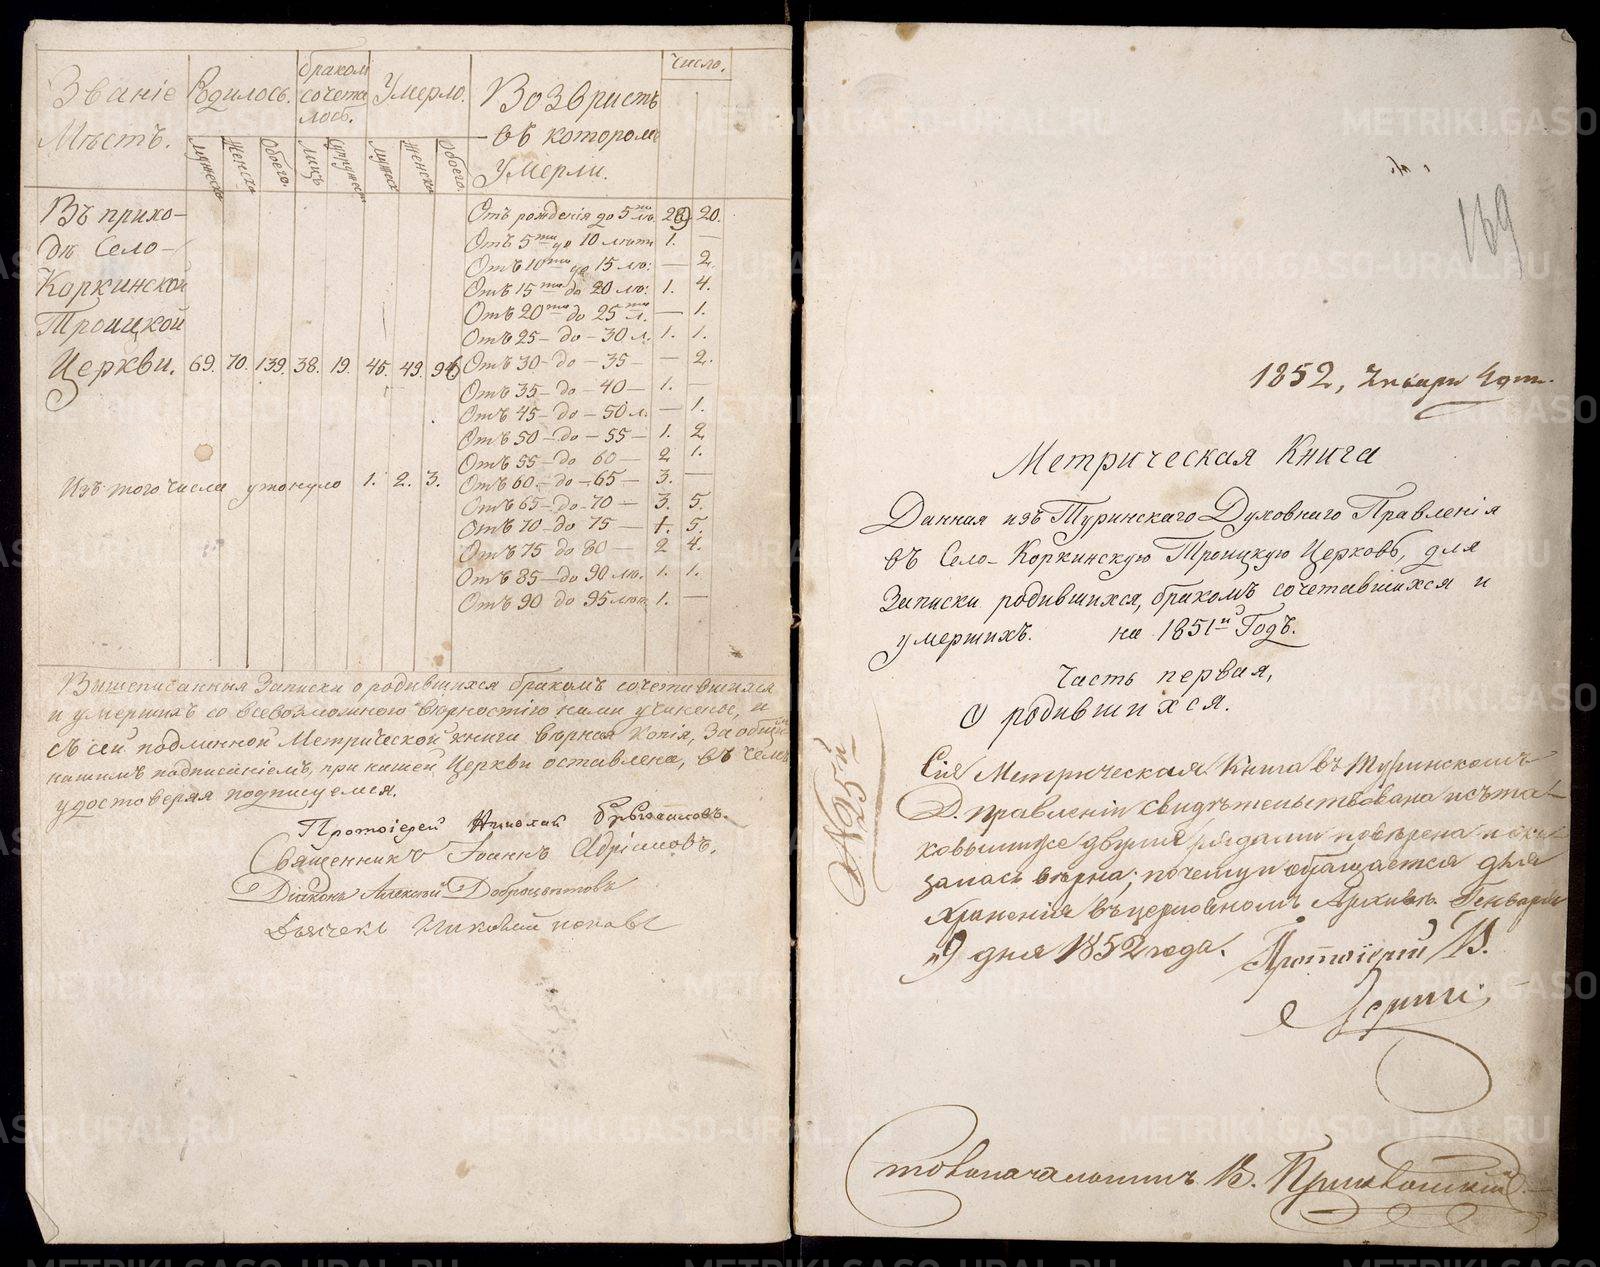 Званіе
Мѣстъ.
Родилось.
бракомъ
сочета
лось.
Умерло.
Возврастъ
въ которомъ
умерли.
число.
Мужеска
Женска
Обоего.
Лицъ
Супружест
Мужеск
Женска
Обоего.
Въ прихо-
дѣ Село-
Коркинской
Троицкой
Церкви. 69. 70. 139. 38. 19. 45. 49. 94
Изъ того числа утонуло 1. 2. 3.
Отъ рожденія до 5ти лѣ. 20.
Отъ 5ти до 10 лѣтъ 1. —
Отъ 10ти до 15 лѣ: — 2.
Отъ 15ти до 20 лѣ: 1. 4.
Отъ 20ти до 25ти л. — 1.
Отъ 25 – до – 30 л. 1. 1.
Отъ 30 – до – 35 – — 2.
Отъ 35 – до – 40 – 1. —
Отъ 45 – до – 50 л. — 1.
Отъ 50 – до – 55 – 1. 2.
Отъ 55 – до 60 – 2 1.
Отъ 60 – до – 65 – 3. —
Отъ 65 – до – 70 – 3. 5.
Отъ 70 – до 75 – 1. 5.
Отъ 75 до 80 – 2 4.
Отъ 85 – до 90 лѣ. 1. 1.
Отъ 90 до 95 лѣт 1. —
Вышеписанныя Записки о родившихся бракомъ сочетавшихся
и умершихъ со всевозможною вѣрностію нами учинены, и
съ сей подлинной Метрической книги вѣрная Копія, за общимъ
нашимъ подписаніемъ, при нашей Церкви оставлена, въ чемъ
удостоверяя подписуемся.
Протоіерей Николай
Священникъ Іоаннъ Адріановъ.
Діаконъ Алексѣй Доброцвѣтовъ
Дьячекъ Николай Поповъ
169
1852, Генваря 4 дня.
Метрическая Книга
Данная изъ Туринскаго Духовнаго Правленія
въ Село-Коркинскую Троицкую Церковь, для
Записки родившихся, бракомъ сочетавшихся и
умершихъ. на 1851й Годъ.
Часть первая,
О родившихся.
№ 65й
Сія Метрическая Книга въ Туринскомъ
Д. Правленіи свидѣтельствована и съ та-
ковыми же двумя годами повѣрена и ока-
залась вѣрна; почему и обращается для
Храненія въ церковномъ Архивѣ. Генваря
9 дня 1852 года. Протоіерей В.
Столоначальникъ В.
METRIKI.GASO-URAL.RU